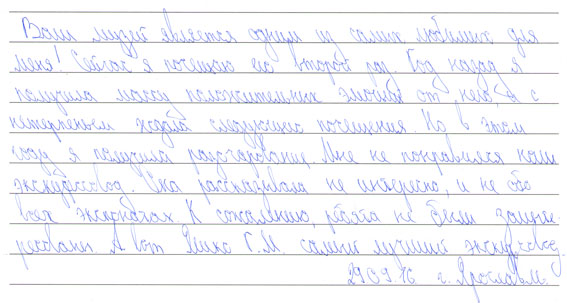 Ваш музей является одним из самых любимых для
меня! Сейчас я посещаю его второй раз. Год назад я
получила массу положительных эмоций от него, и с
нетерпеньем ждала следующего посещения. Но в этом
году я получила разочарование. Мне не понравился наш
экскурсовод. Она рассказывала не интересно, и не обо
всех экспонатах. К сожалению, ребята не были заинте-
ресованы. А вот С.М. самый лучший экскурсовод.
29.09.16 г. Ярославль.